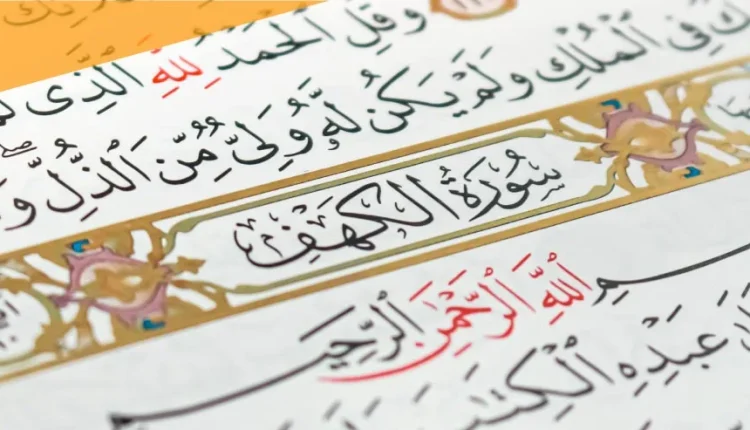 وَقُلِ ٱلْحَمْدُ لِلَّهِ ٱلَّذِى
فِى ٱلْمُلْكِ وَلَمْ يَكُن لَّهُۥ وَلِىٌّ مِّنَ ٱلذُّلِّ
سُورَةُ الكَهْفِ
ٱللَّهِ ٱلرَّحْمَٰنِ ٱلرَّحِيمِ
عَبْدِهِ ٱلْكِتَٰبَ